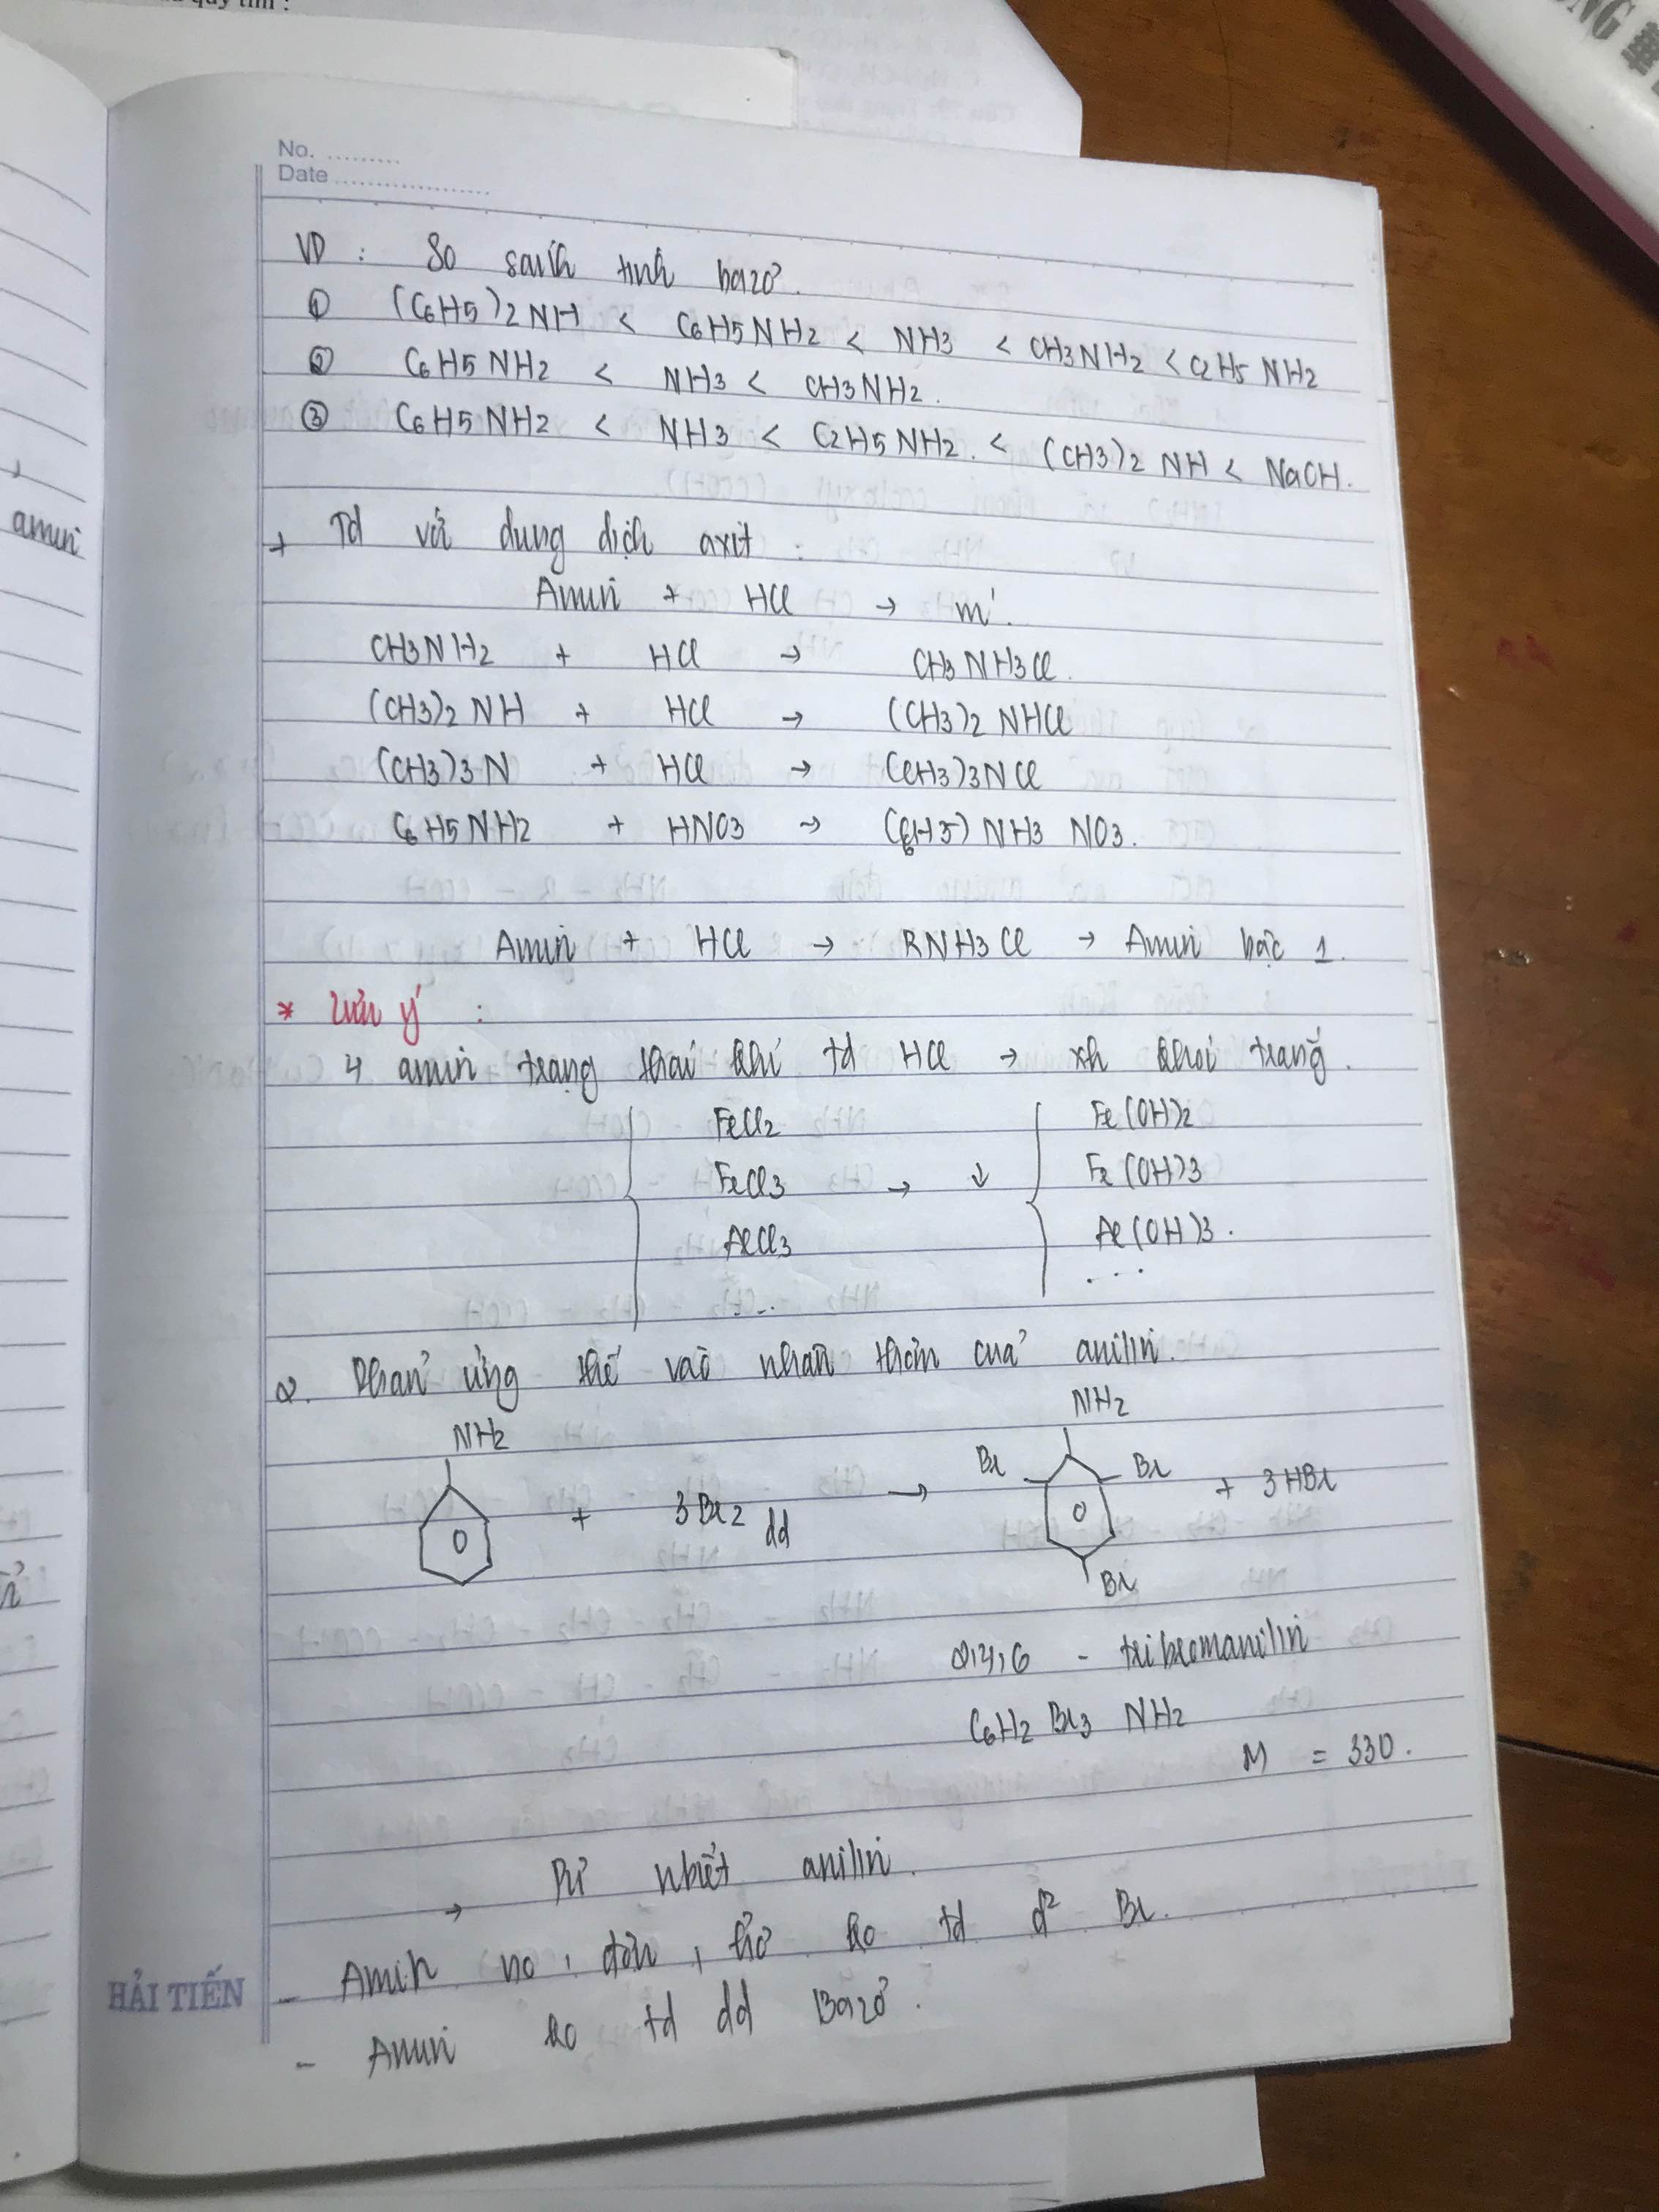 quỳ tím :
No. .........
Date ..................
VD : So sánh tính bazơ.
① (C6H5)2NH < C6H5NH2 < NH3 < CH3NH2 < C2H5NH2
② C6H5NH2 < NH3 < CH3NH2.
③ C6H5NH2 < NH3 < C2H5NH2. < (CH3)2 NH < NaOH.
+ Td với dung dịch axit :
Amin + HCl → m'.
CH3NH2 + HCl → CH3NH3Cl.
(CH3)2 NH + HCl → (CH3)2 NHCl
(CH3)3N + HCl → (CH3)3NCl
C6H5NH2 + HNO3 → (C6H5) NH3 NO3.
Amin + HCl → RNH3Cl → Amin bậc 1.
* Lưu ý :
4 amin trạng thái khí td HCl → xh khói trắng.
FeCl2 Fe(OH)2
FeCl3 → ↓ Fe(OH)3
AlCl3 Al(OH)3.
... ...
2. Phản ứng thế vào nhân thơm của anilin.
NH2 NH2
Br Br
+ 3Br2 dd → + 3HBr
Br
2,4,6 - tribromanilin
C6H2 Br3 NH2
M = 330.
→ Pư nhiết anilin.
- Amin no, đơn, hở ko td d² Br.
- Amin ko td dd Bazơ.
HẢI TIẾN
amin